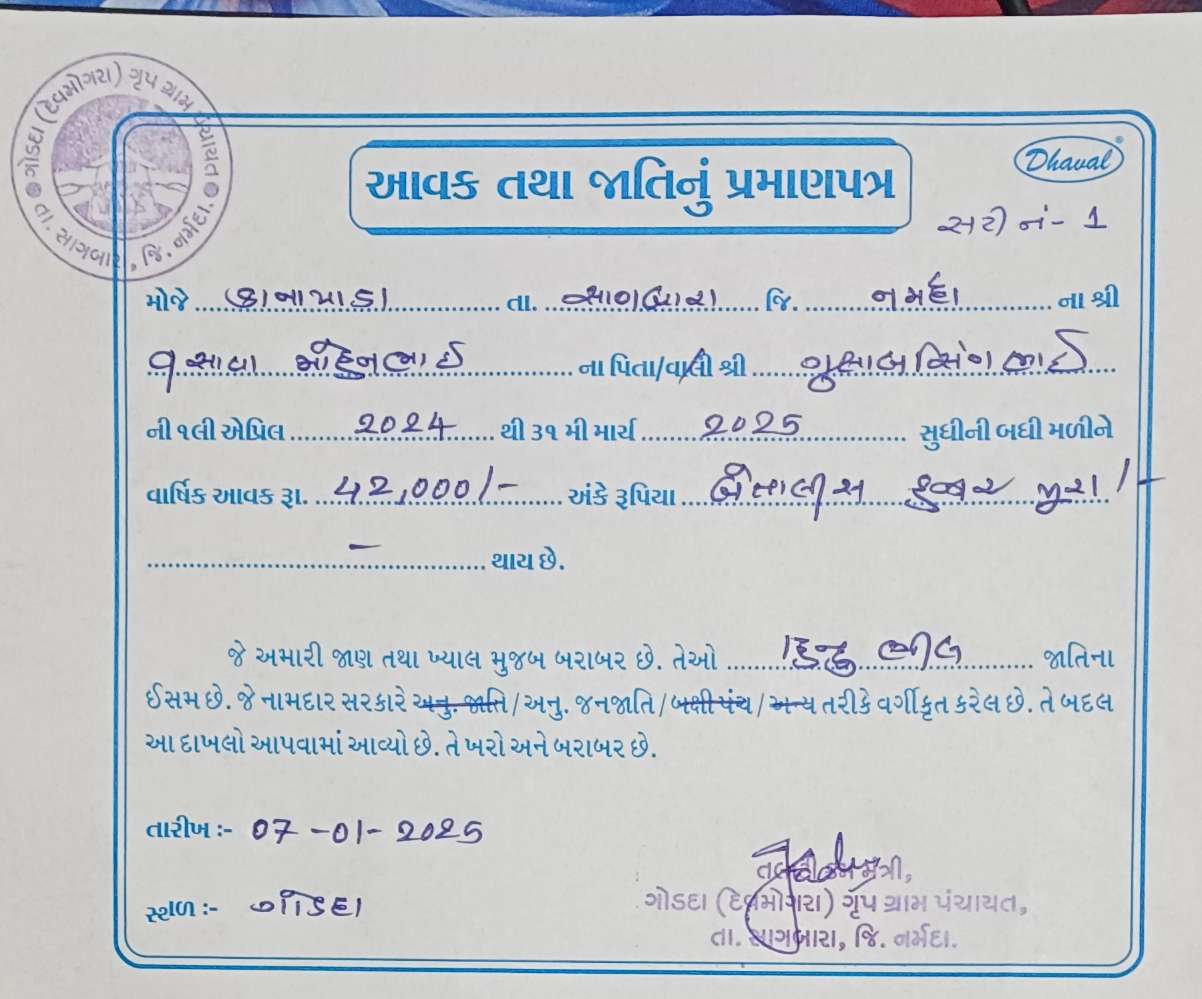 ગોડદા (દેવમોગરા) ગૃપ ગ્રામ પંચાયત
તા. સાગબારા, જિ. નર્મદા.
Dhaval
આવક તથા જાતિનું પ્રમાણપત્ર
સર્ટી નં - 1
મોજે કાનાપાડા તા. સાગબારા જિ. નર્મદા ના શ્રી
વસાવા મોહનભાઈ ના પિતા/વાલી શ્રી ગુલાબસિંગભાઈ
ની ૧લી એપ્રિલ ૨૦૨૪ થી ૩૧ મી માર્ચ ૨૦૨૫ સુધીની બધી મળીને
વાર્ષિક આવક રૂા. ૪૨,૦૦૦/- અંકે રૂપિયા બેતાલીસ હજાર પુરા/-
- થાય છે.
જે અમારી જાણ તથા ખ્યાલ મુજબ બરાબર છે. તેઓ હિન્દુ ભીલ જાતિના
ઈસમ છે. જે નામદાર સરકારે અનુ. જાતિ/અનુ. જનજાતિ/બક્ષીપંચ/અન્ય તરીકે વર્ગીકૃત કરેલ છે. તે બદલ
આ દાખલો આપવામાં આવ્યો છે. તે ખરો અને બરાબર છે.
તારીખ :- 07-01-2025
સ્થળ :- ગોડદા
તલાટી કમ મંત્રી,
ગોડદા (દેવમોગરા) ગૃપ ગ્રામ પંચાયત,
તા. સાગબારા, જિ. નર્મદા.